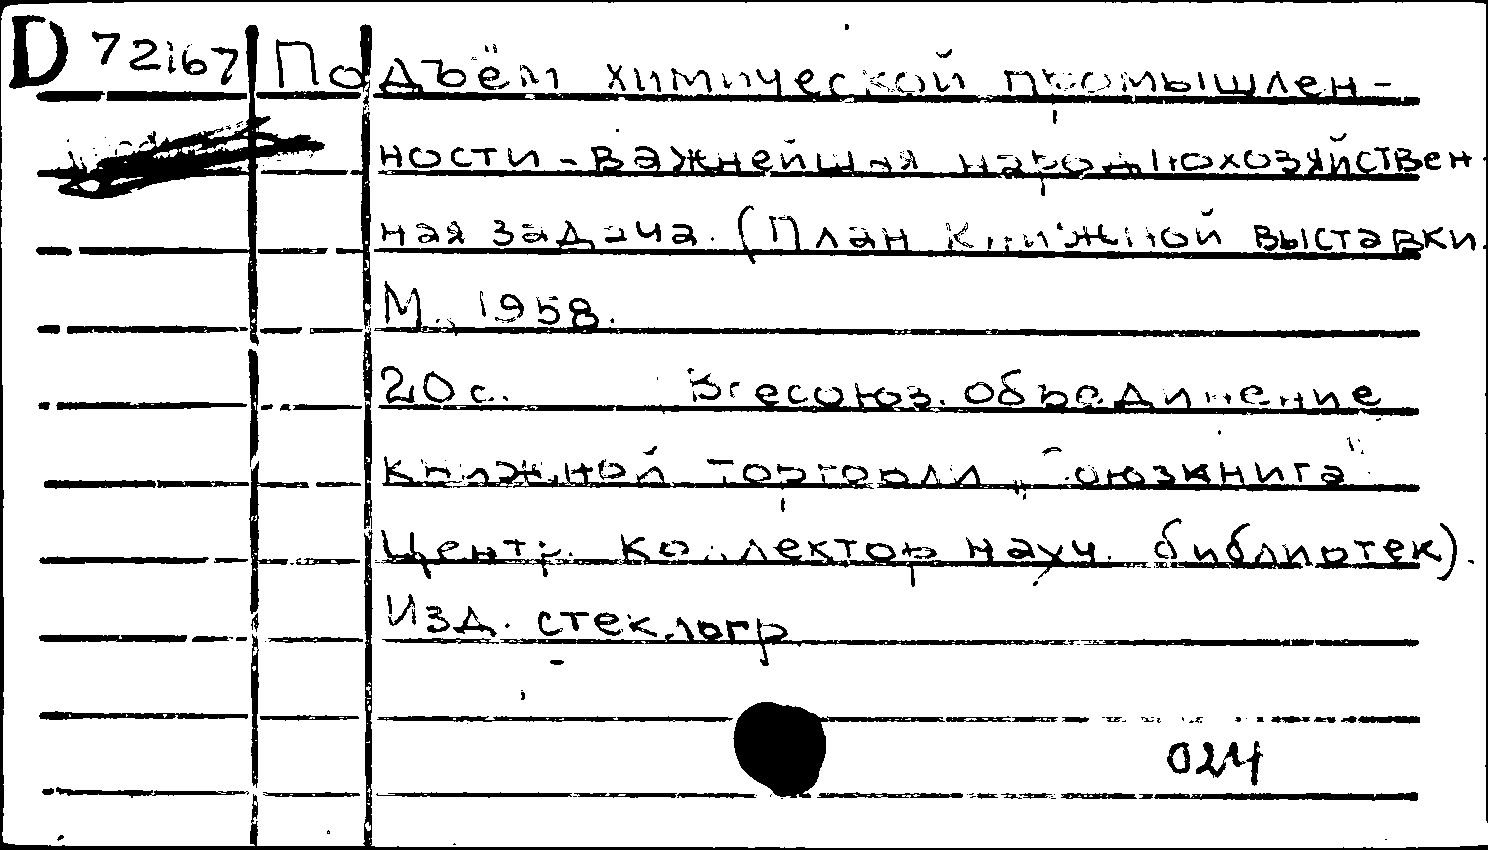 D 72167 Подъём химической промышлен-
ности - важнейшая народнохозяйствен-
ная задача. (План книжной выставки.
М., 1958.
20 с. Всесоюз. объединение
книжной торговли „Союзкнига".
Центр. коллектор науч. библиотек).
Изд. стеклогр.
024